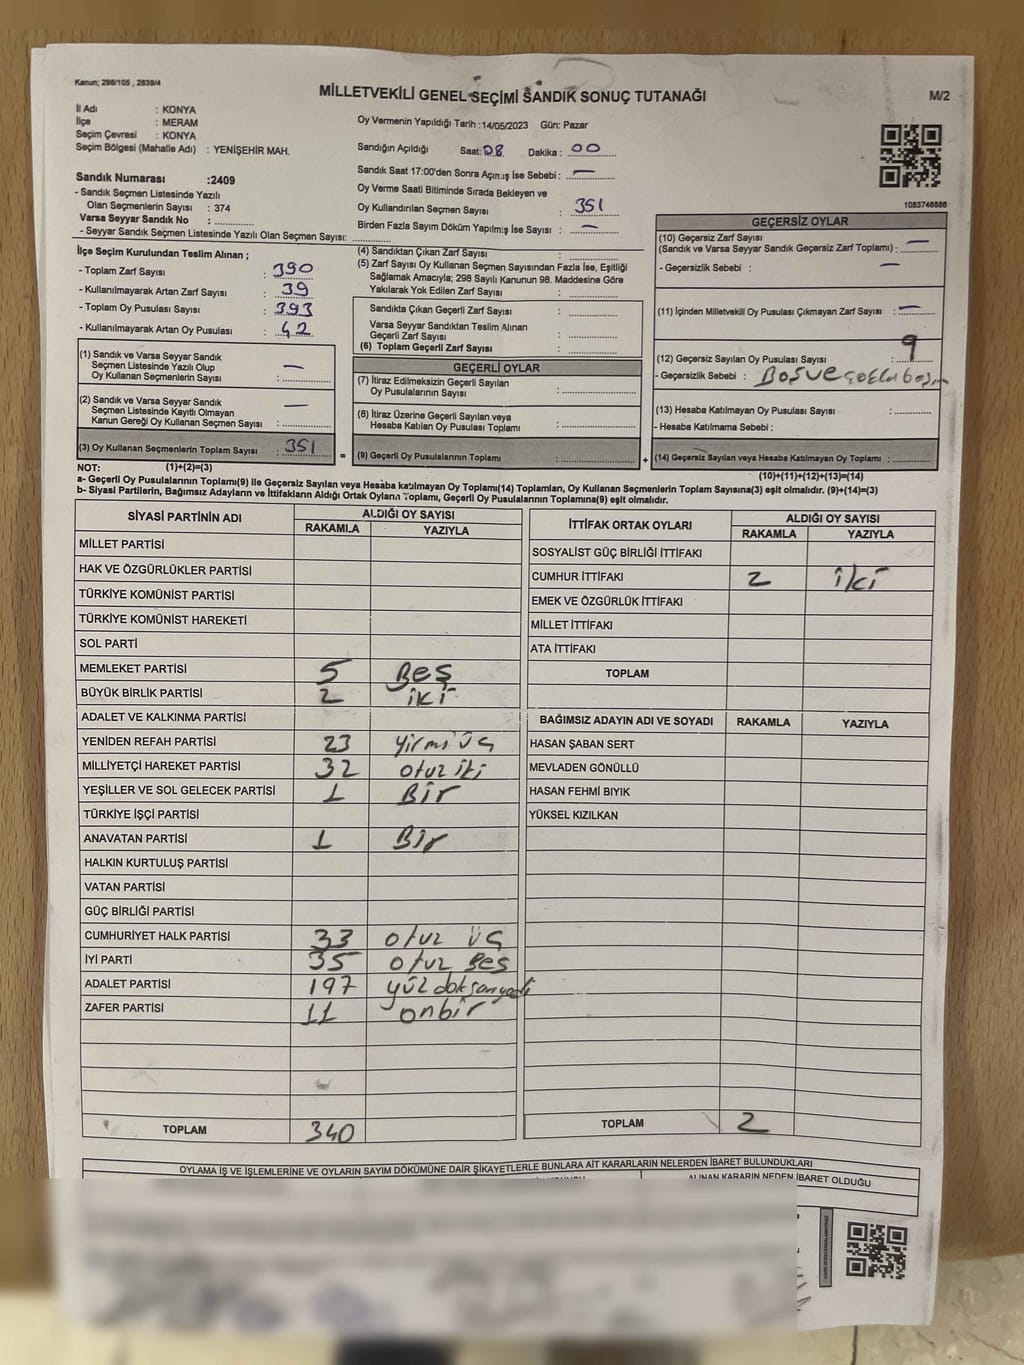 Kanun; 298/105 , 2839/4
MİLLETVEKİLİ GENEL SEÇİMİ SANDIK SONUÇ TUTANAĞI
M/2
İl Adı : KONYA
İlçe : MERAM
Seçim Çevresi : KONYA
Seçim Bölgesi (Mahalle Adı) : YENİŞEHİR MAH.
Oy Vermenin Yapıldığı Tarih :14/05/2023 Gün: Pazar
Sandığın Açıldığı Saat: 08 Dakika : 00
Sandık Saat 17:00'den Sonra Açılmış İse Sebebi : —
Oy Verme Saati Bitiminde Sırada Bekleyen ve
Oy Kullandırılan Seçmen Sayısı : 351
Birden Fazla Sayım Döküm Yapılmış İse Sayısı : —
1083746886
Sandık Numarası :2409
- Sandık Seçmen Listesinde Yazılı
Olan Seçmenlerin Sayısı : 374
Varsa Seyyar Sandık No : ............
- Seyyar Sandık Seçmen Listesinde Yazılı Olan Seçmen Sayısı: ............
İlçe Seçim Kurulundan Teslim Alınan ;
- Toplam Zarf Sayısı : 390
- Kullanılmayarak Artan Zarf Sayısı : 39
- Toplam Oy Pusulası Sayısı : 393
- Kullanılmayarak Artan Oy Pusulası : 42
(1) Sandık ve Varsa Seyyar Sandık
Seçmen Listesinde Yazılı Olup
Oy Kullanan Seçmenlerin Sayısı : —
(2) Sandık ve Varsa Seyyar Sandık
Seçmen Listesinde Kayıtlı Olmayan
Kanun Gereği Oy Kullanan Seçmen Sayısı : —
(3) Oy Kullanan Seçmenlerin Toplam Sayısı : 351
(1)+(2)=(3)
(4) Sandıktan Çıkan Zarf Sayısı : ............
(5) Zarf Sayısı Oy Kullanan Seçmen Sayısından Fazla İse, Eşitliği
Sağlamak Amacıyla; 298 Sayılı Kanunun 98. Maddesine Göre
Yakılarak Yok Edilen Zarf Sayısı : ............
Sandıkta Çıkan Geçerli Zarf Sayısı : ............
Varsa Seyyar Sandıktan Teslim Alınan
Geçerli Zarf Sayısı : ............
(6) Toplam Geçerli Zarf Sayısı : ............
GEÇERLİ OYLAR
(7) İtiraz Edilmeksizin Geçerli Sayılan
Oy Pusulalarının Sayısı : ............
(8) İtiraz Üzerine Geçerli Sayılan veya
Hesaba Katılan Oy Pusulası Toplamı : ............
= (9) Geçerli Oy Pusulalarının Toplamı : ............
GEÇERSİZ OYLAR
(10) Geçersiz Zarf Sayısı
(Sandık ve Varsa Seyyar Sandık Geçersiz Zarf Toplamı) : —
- Geçersizlik Sebebi : —
(11) İçinden Milletvekili Oy Pusulası Çıkmayan Zarf Sayısı : —
(12) Geçersiz Sayılan Oy Pusulası Sayısı : 9
- Geçersizlik Sebebi : Boş ve
(13) Hesaba Katılmayan Oy Pusulası Sayısı : ............
- Hesaba Katılmama Sebebi :
+ (14) Geçersiz Sayılan veya Hesaba Katılmayan Oy Toplamı : ............
(10)+(11)+(12)+(13)=(14)
NOT:
a- Geçerli Oy Pusulalarının Toplamı(9) ile Geçersiz Sayılan veya Hesaba katılmayan Oy Toplamı(14) Toplamları, Oy Kullanan Seçmenlerin Toplam Sayısına(3) eşit olmalıdır. (9)+(14)=(3)
b- Siyasi Partilerin, Bağımsız Adayların ve İttifakların Aldığı Ortak Oyların Toplamı, Geçerli Oy Pusulalarının Toplamına(9) eşit olmalıdır.
SİYASİ PARTİNİN ADI ALDIĞI OY SAYISI
RAKAMLA YAZIYLA
MİLLET PARTİSİ
HAK VE ÖZGÜRLÜKLER PARTİSİ
TÜRKİYE KOMÜNİST PARTİSİ
TÜRKİYE KOMÜNİST HAREKETİ
SOL PARTİ
MEMLEKET PARTİSİ 5 Beş
BÜYÜK BİRLİK PARTİSİ 2 iki
ADALET VE KALKINMA PARTİSİ
YENİDEN REFAH PARTİSİ 23 yirmi üç
MİLLİYETÇİ HAREKET PARTİSİ 32 otuz iki
YEŞİLLER VE SOL GELECEK PARTİSİ 1 Bir
TÜRKİYE İŞÇİ PARTİSİ
ANAVATAN PARTİSİ 1 Bir
HALKIN KURTULUŞ PARTİSİ
VATAN PARTİSİ
GÜÇ BİRLİĞİ PARTİSİ
CUMHURİYET HALK PARTİSİ 33 otuz üç
İYİ PARTİ 35 otuz Beş
ADALET PARTİSİ 197 yüz doksanyedi
ZAFER PARTİSİ 11 onbir
TOPLAM 340
İTTİFAK ORTAK OYLARI ALDIĞI OY SAYISI
RAKAMLA YAZIYLA
SOSYALİST GÜÇ BİRLİĞİ İTTİFAKI
CUMHUR İTTİFAKI 2 iki
EMEK VE ÖZGÜRLÜK İTTİFAKI
MİLLET İTTİFAKI
ATA İTTİFAKI
TOPLAM
BAĞIMSIZ ADAYIN ADI VE SOYADI RAKAMLA YAZIYLA
HASAN ŞABAN SERT
MEVLADEN GÖNÜLLÜ
HASAN FEHMİ BIYIK
YÜKSEL KIZILKAN
TOPLAM 2
OYLAMA İŞ VE İŞLEMLERİNE VE OYLARIN SAYIM DÖKÜMÜNE DAİR ŞİKAYETLERLE BUNLARA AİT KARARLARIN NELERDEN İBARET BULUNDUKLARI
ALINAN KARARIN NEDEN İBARET OLDUĞU